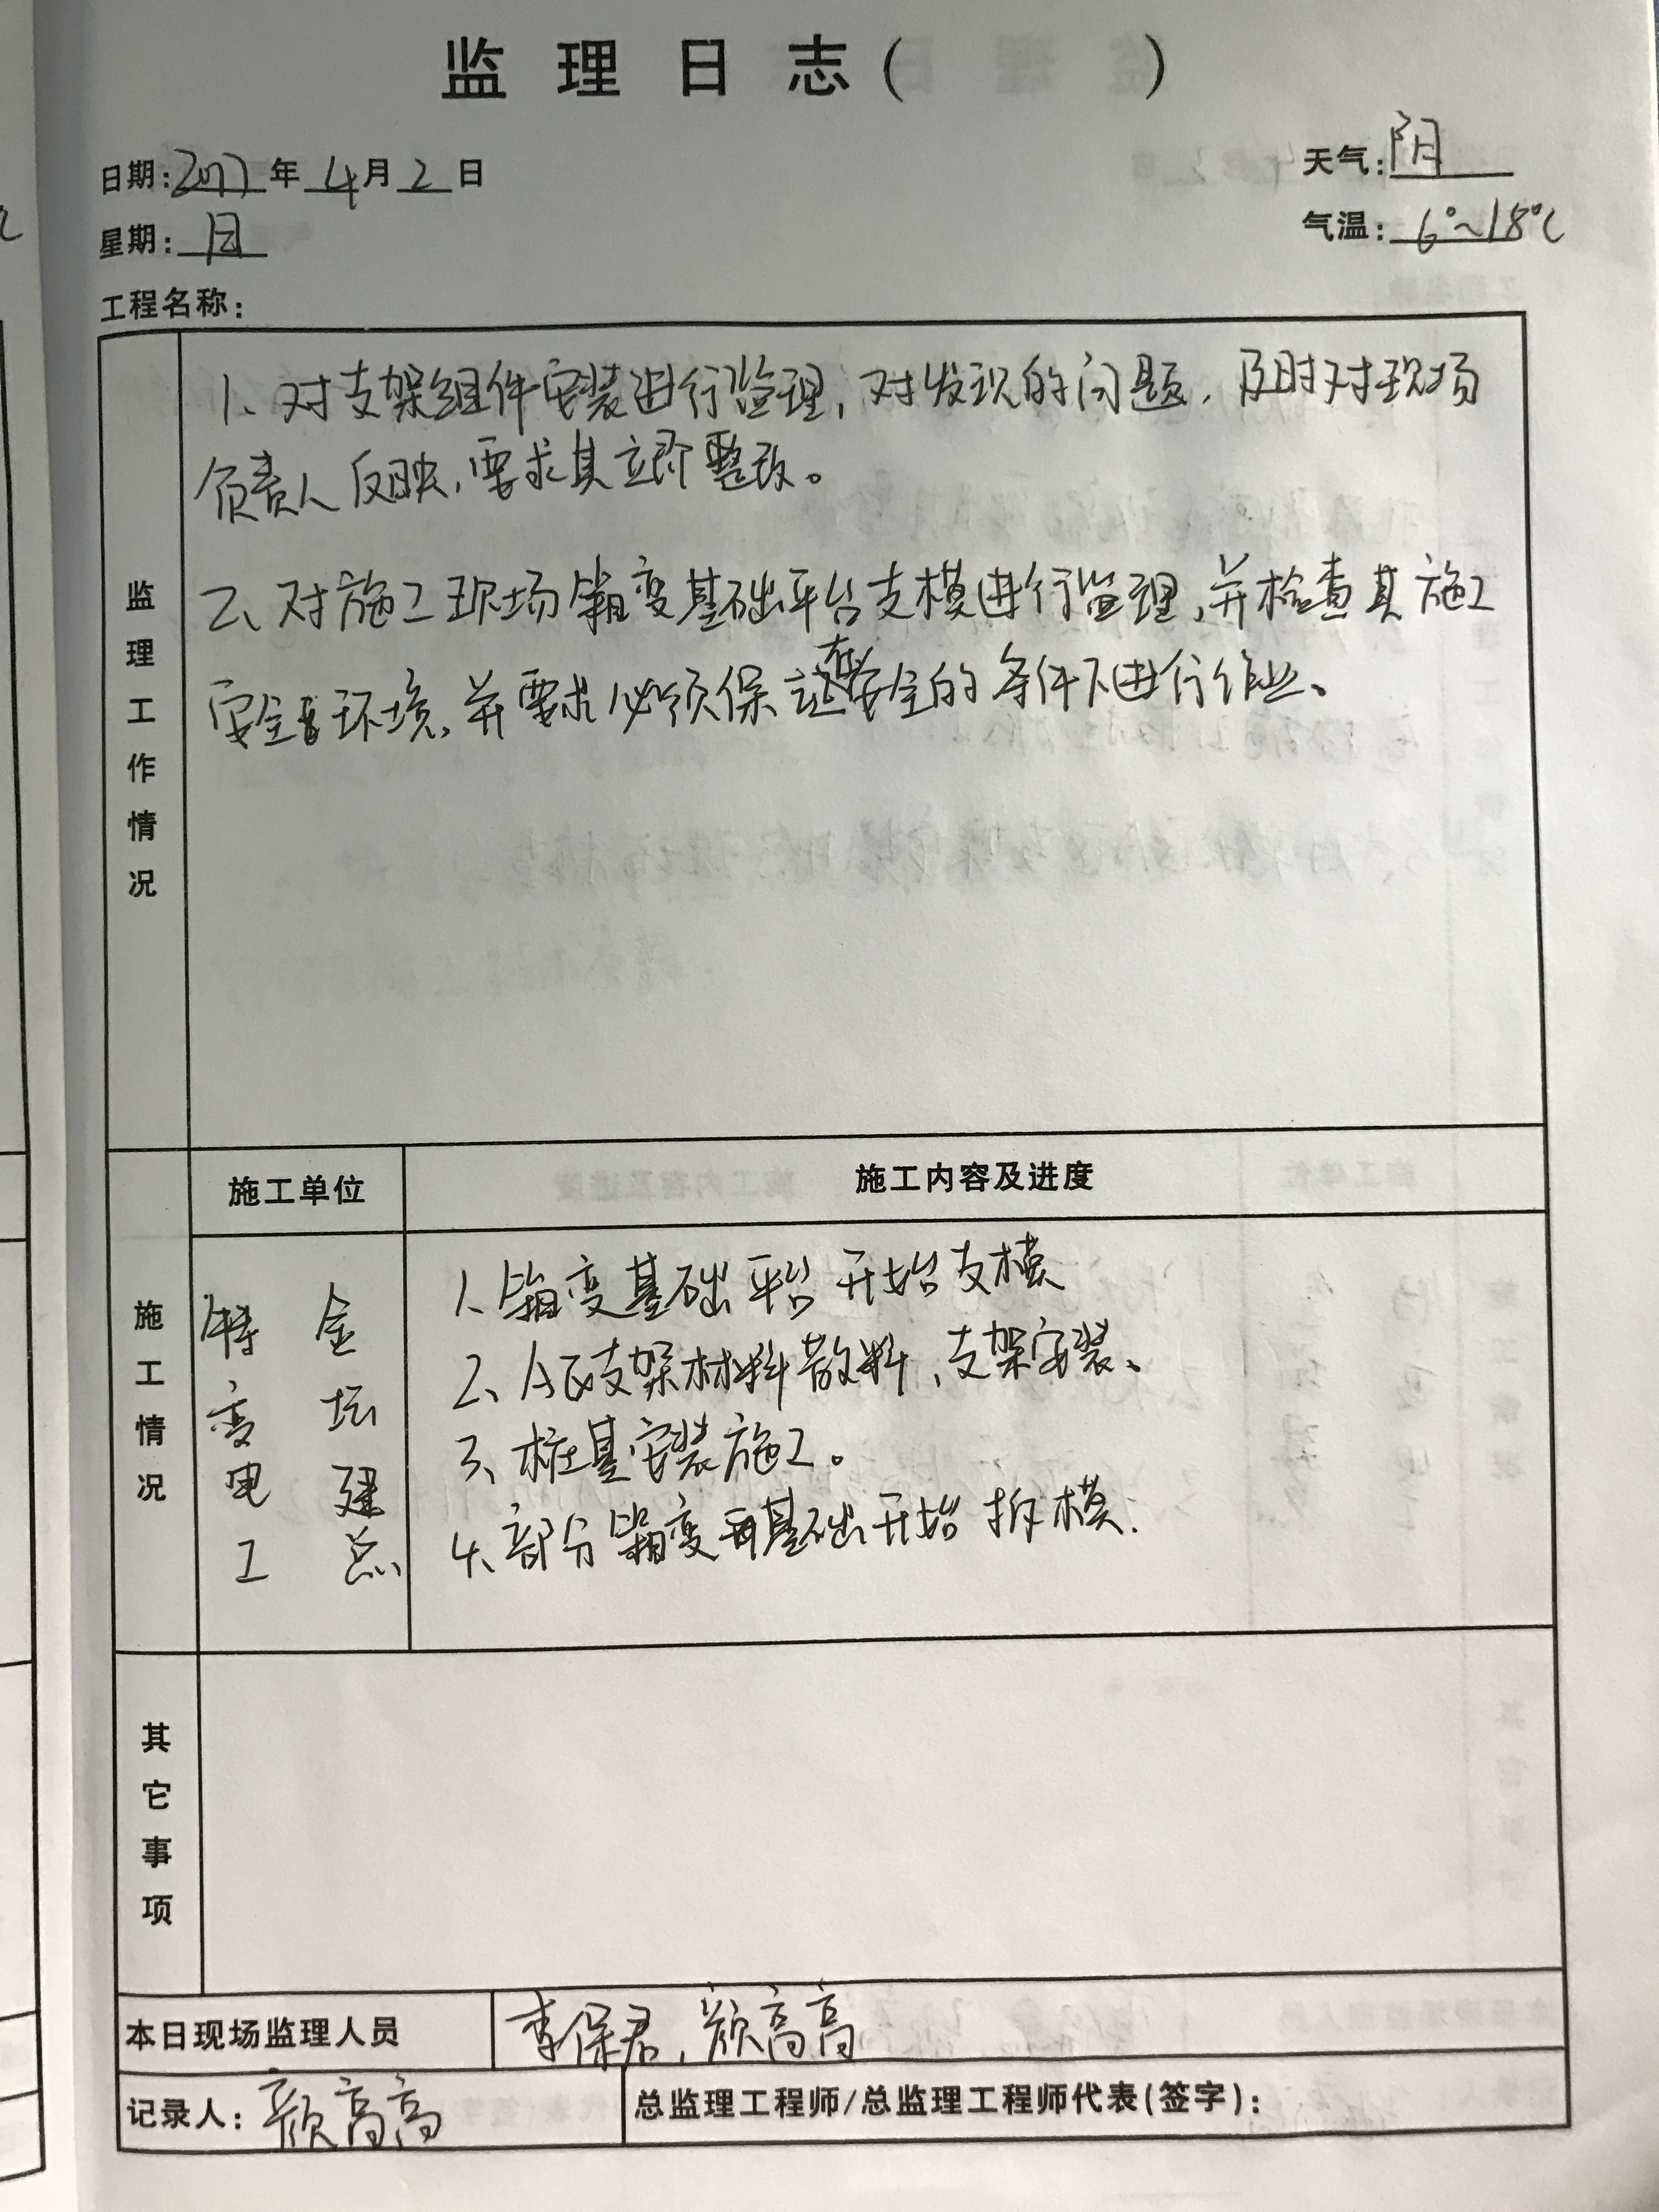 监理日志( )
日期:2017年4月2日
天气:阴
星期:日
气温:6°~18℃
工程名称:
监理工作情况
1、对支架组件安装进行监理,对发现的问题,及时对现场
负责人反映,要求其立即整改。
2、对施工现场箱变基础平台支模进行监理,并检查其施工
安全环境,并要求必须保证在安全的条件下进行作业、
施工单位
施工内容及进度
施工情况
特变电工
金坛建总
1、箱变基础平台开始支模
2、A区支架材料散料、支架安装、
3、桩基安装施工。
4、部分箱变基础开始拆模.
其它事项
本日现场监理人员
李保君,颜高高
记录人:颜高高
总监理工程师/总监理工程师代表(签字):